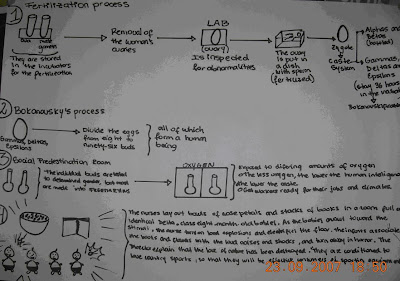 1 Fertilization process
LAB
ova male gametes
They are stored
in the incubators
for the fertilization
Removal of
the woman's
ovaries
(ovary)
Is inspected
for abnormalities
The ovary
is put in
a dish
with sperm
(fertilized)
Zygote
Caste
System
Alphas and
Betas
(bottled)
Gammas,
Deltas and
Epsilons
(stay 36 hours
in the incubator)
Bokanovsky's process
2 Bokanovsky's process
Gammas, deltas,
Epsilons
Divide the eggs
from eight to
ninety-six buds
all of which
form a human
being
3 Social Predestination Room
The individual buds are
to determined gender, but most
are made into freemartins
OXYGEN
Exposed to differing amounts of oxygen
The less oxygen, the lower the human intelligence
the lower the caste.
workers ready for their jobs and climates
The nurses lay out bowls of rose petals and stacks of books in a room full of
identical Delta class eight month old babies. As the babies crawl toward the
stimuli, the nurse turn on loud explosions and the floor. The infants associate
the books and flowers with the loud noises and shocks, and turn away in horror. The
explain that the love of nature has been destroyed. They are conditioned to
love country sports, so that they will be effective consumers of sporting equipment
23.09.2007 18:00